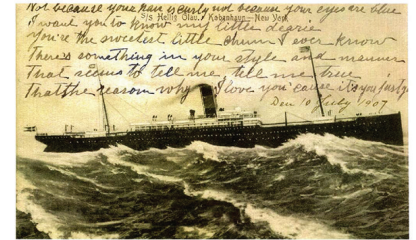 Not because your hair is curly not because your eyes are blue
S/s Hellig Olav. Kobenhavn—New York
I want you to know my little dearie
You're the sweetest little chum I ever know
There's something in your style and manner
That seems to tell me, tell me true
That the reason why I love you 'cause it's you just
Den 10 July 1907